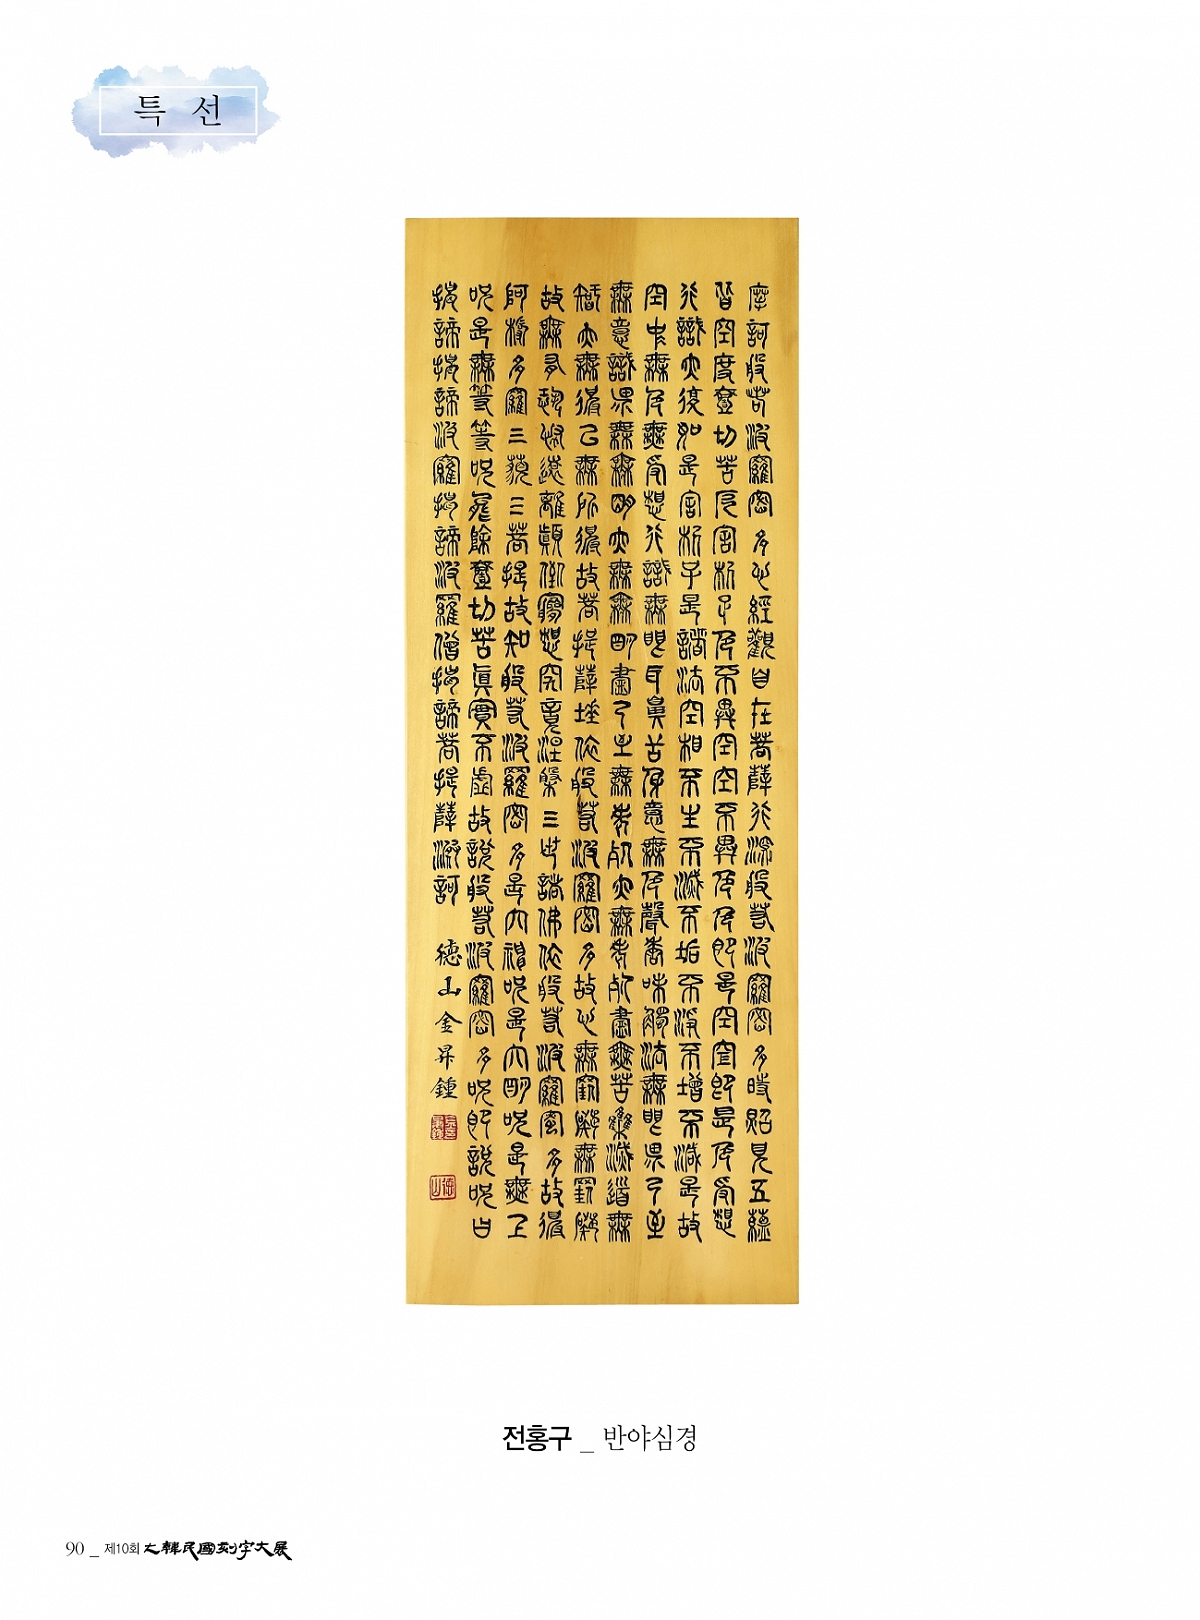 특선
摩訶般若波羅蜜多心經觀自在菩薩行深般若波羅蜜多時照見五蘊
皆空度壹切苦厄舍利子色不異空空不異色色卽是空空卽是色受想
行識亦復如是舍利子是諸法空相不生不滅不垢不淨不增不減是故
空中無色無受想行識無眼耳鼻舌身意無色聲香味觸法無眼界乃至
無意識界無無明亦無無明盡乃至無老死亦無老死盡無苦集滅道無
智亦無得以無所得故菩提薩埵依般若波羅蜜多故心無罣礙無罣礙
故無有恐怖遠離顚倒夢想究竟涅槃三世諸佛依般若波羅蜜多故得
阿耨多羅三藐三菩提故知般若波羅蜜多是大神呪是大明呪是無上
呪是無等等呪能除壹切苦眞實不虛故說般若波羅蜜多呪卽說呪曰
揭諦揭諦波羅揭諦波羅僧揭諦菩提薩婆訶 德山金昇鍾
전홍구 _ 반야심경
90 _ 제10회 大韓民國刻字大展